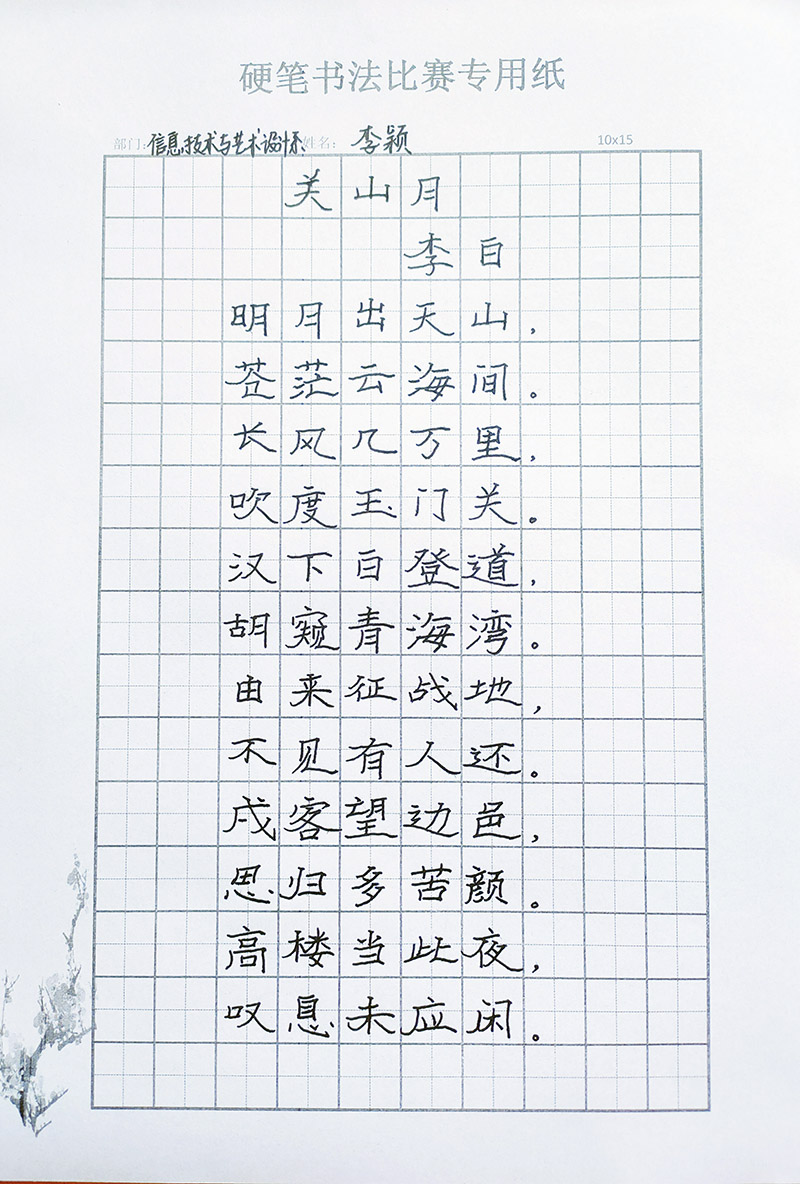 硬笔书法比赛专用纸
部门：信息技术与艺术设计系 姓名：李颖 10x15
关山月
李白
明月出天山，
苍茫云海间。
长风几万里，
吹度玉门关。
汉下白登道，
胡窥青海湾。
由来征战地，
不见有人还。
戍客望边邑，
思归多苦颜。
高楼当此夜，
叹息未应闲。